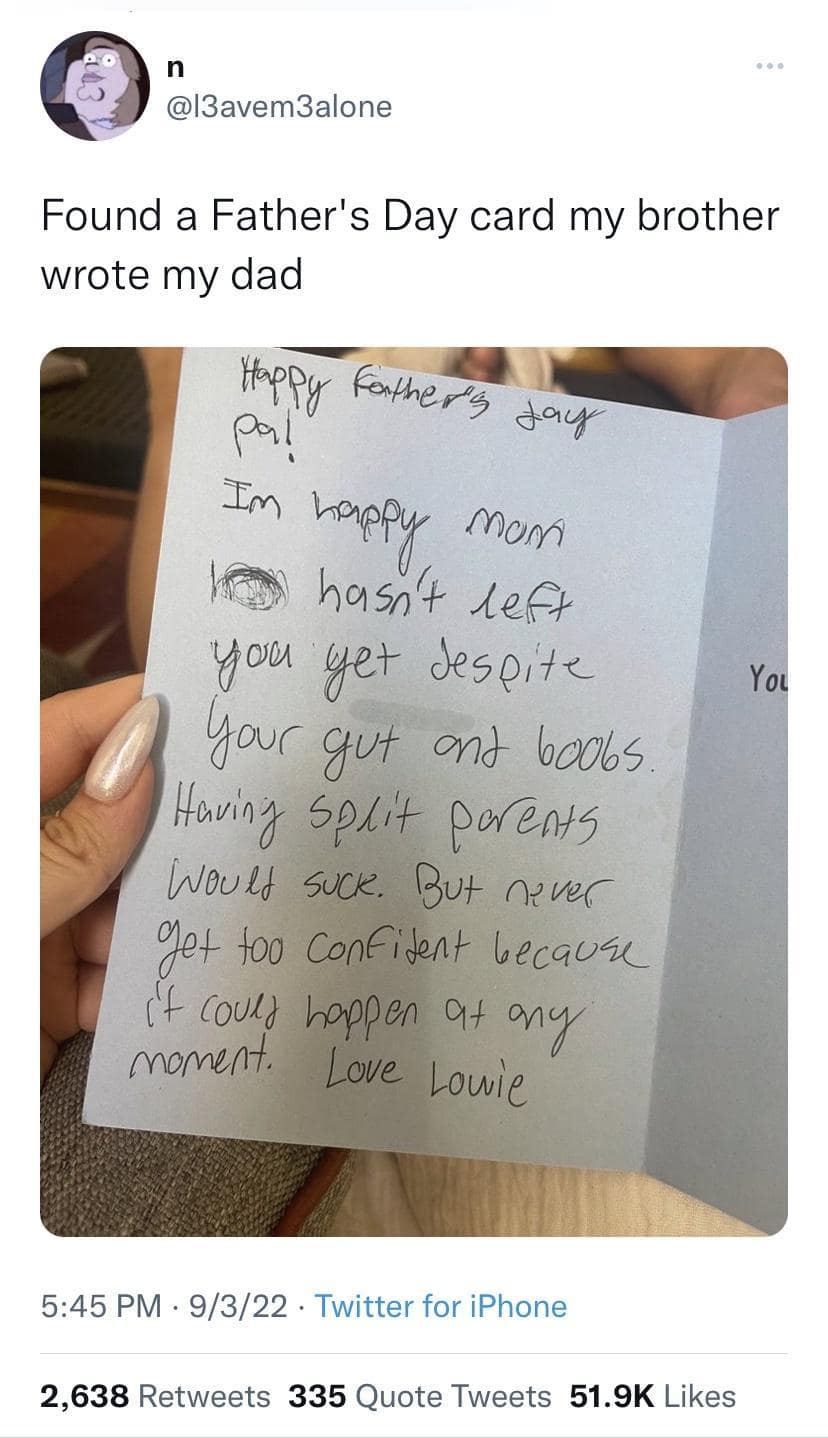 n
@l3avem3alone
Found a Father's Day card my brother
wrote my dad
Happy Father's day
pa!
Im happy mom
hasn't left
you yet despite
Your gut and boobs.
Having split parents
Would suck. But never
get too confident because
it could happen at any
moment. Love Lowie
You
5:45 PM · 9/3/22 · Twitter for iPhone
2,638 Retweets 335 Quote Tweets 51.9K Likes